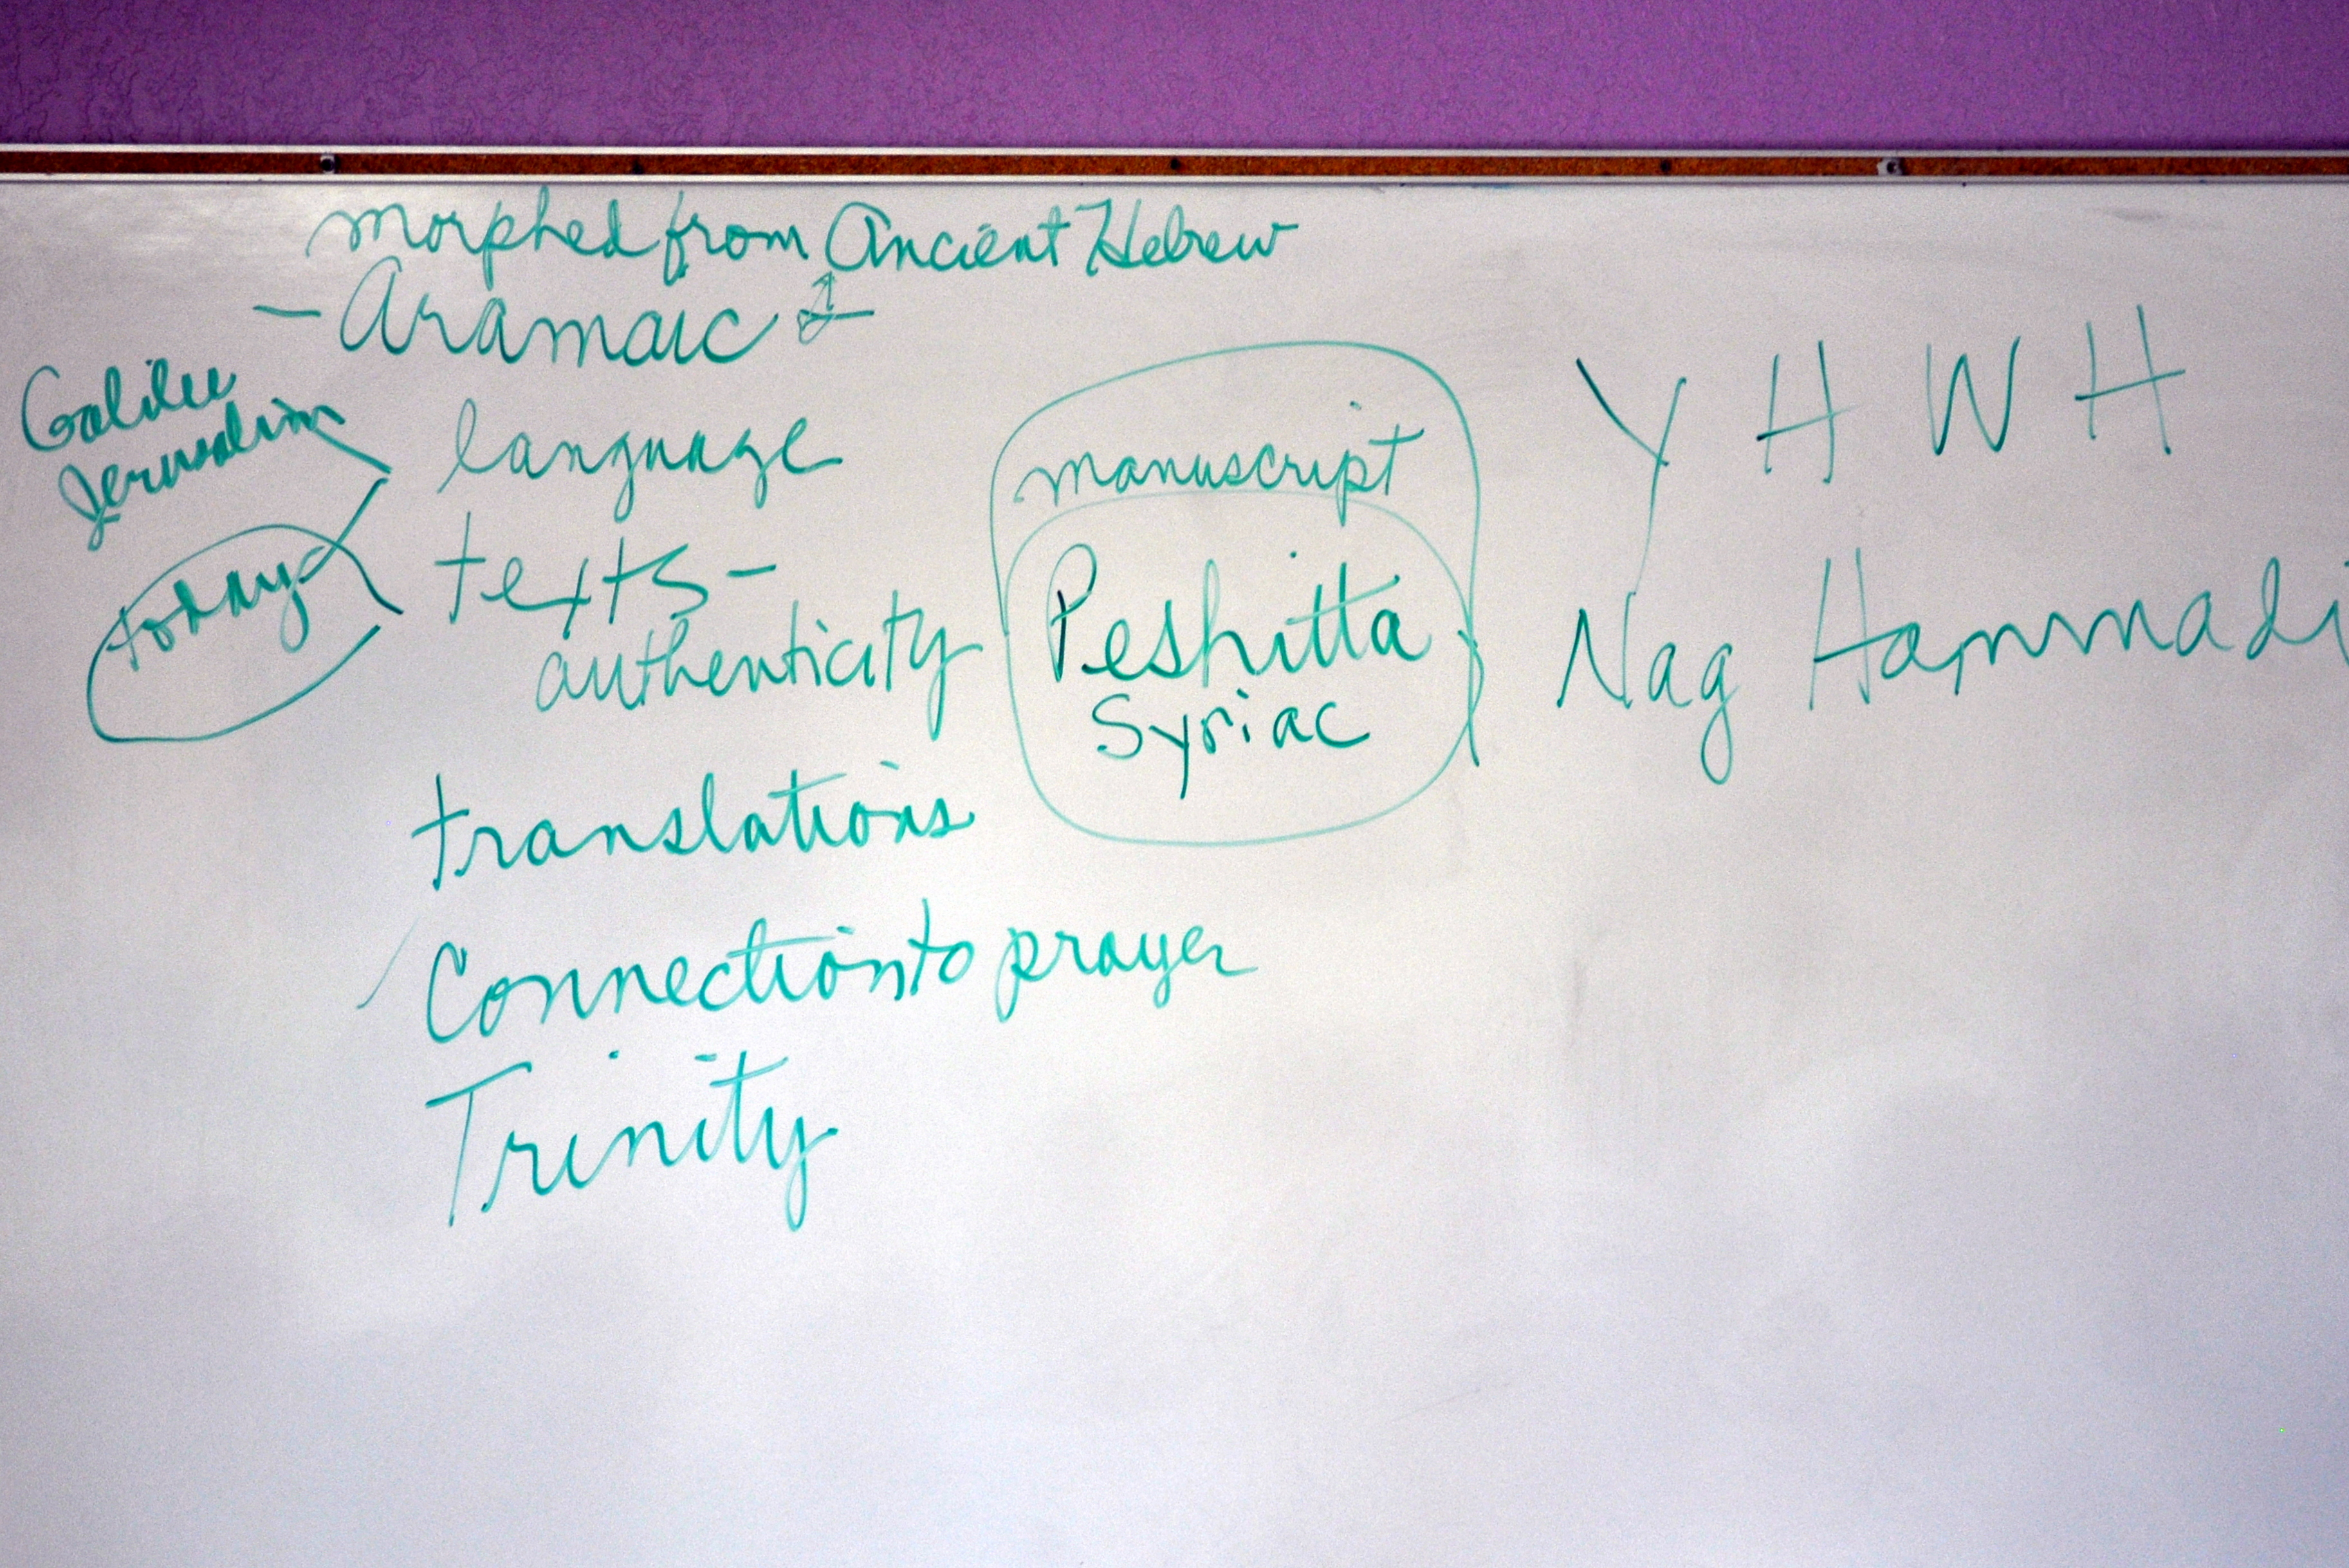 morphed from Ancient Hebrew
- Aramaic
Galilee
Jerusalim
today
language
texts -
authenticity
translations
Connection to prayer
Trinity
manuscript
Peshitta
Syriac
Y H W H
Nag Hammadi